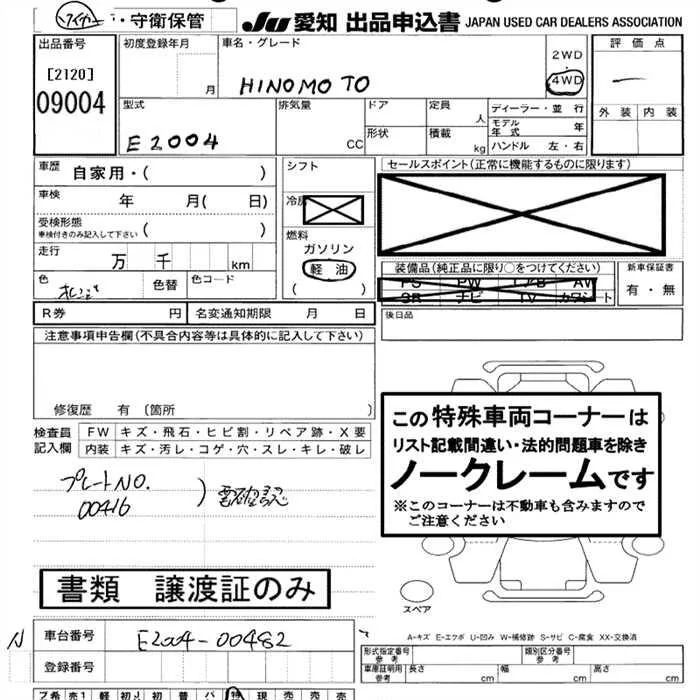 ・守衛保管
JU 愛知 出品申込書 JAPAN USED CAR DEALERS ASSOCIATION
出品番号
[2120]
09004
初度登録年月
月
車名・グレード
HINOMOTO
2WD
・
4WD
評価点
ー
外装 内装
型式
E2004
排気量
CC
ドア
形状
定員
人
積載
kg
ディーラー・並行
モデル年式 年
ハンドル 左・右
車歴
自家用・( )
車検
年 月( 日)
受検形態
車検付きのみ記入して下さい ( )
走行
万 千 km
色
オレンジ
色替
色コード
シフト
冷房
燃料
ガソリン
軽油
( )
セールスポイント(正常に機能するものに限ります)
装備品(純正品に限り○をつけてください)
PS PW エアB AW
SR ナビ TV カワシート
新車保証書
有・無
R券 円
名変通知期限 月 日
後日品
注意事項申告欄(不具合内容等は具体的に記入して下さい)
修復歴 有 〔箇所 〕
検査員記入欄
FW キズ・飛石・ヒビ割・リペア跡・X要
内装 キズ・汚レ・コゲ・穴・スレ・キレ・破レ
プレートNO.
00416
この特殊車両コーナーは
リスト記載間違い・法的問題車を除き
ノークレームです
※このコーナーは不動車も含みますので
ご注意ください
書類 譲渡証のみ
スペア
A-キズ E-エクボ U-凹み W-補修跡 S-サビ C-腐食 XX-交換済
N
車台番号
E2004-00482
登録番号
形式指定番号
参考
類別区分番号
参考
車庫証明用
参考
長さ cm
幅 cm
高さ cm